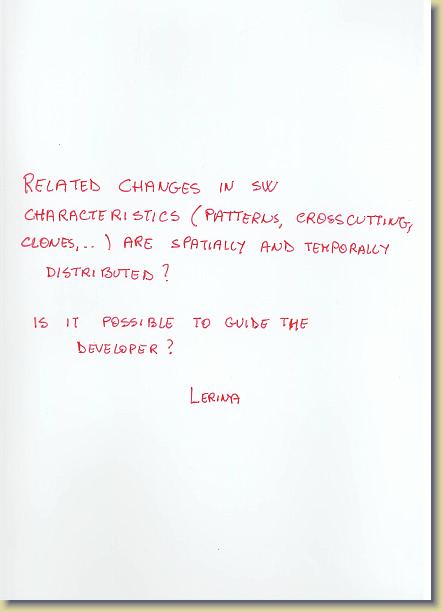 RELATED CHANGES IN SW
CHARACTERISTICS (PATTERNS, CROSSCUTTING,
CLONES,..) ARE SPATIALLY AND TEMPORALLY
DISTRIBUTED?
IS IT POSSIBLE TO GUIDE THE
DEVELOPER?
LERINA